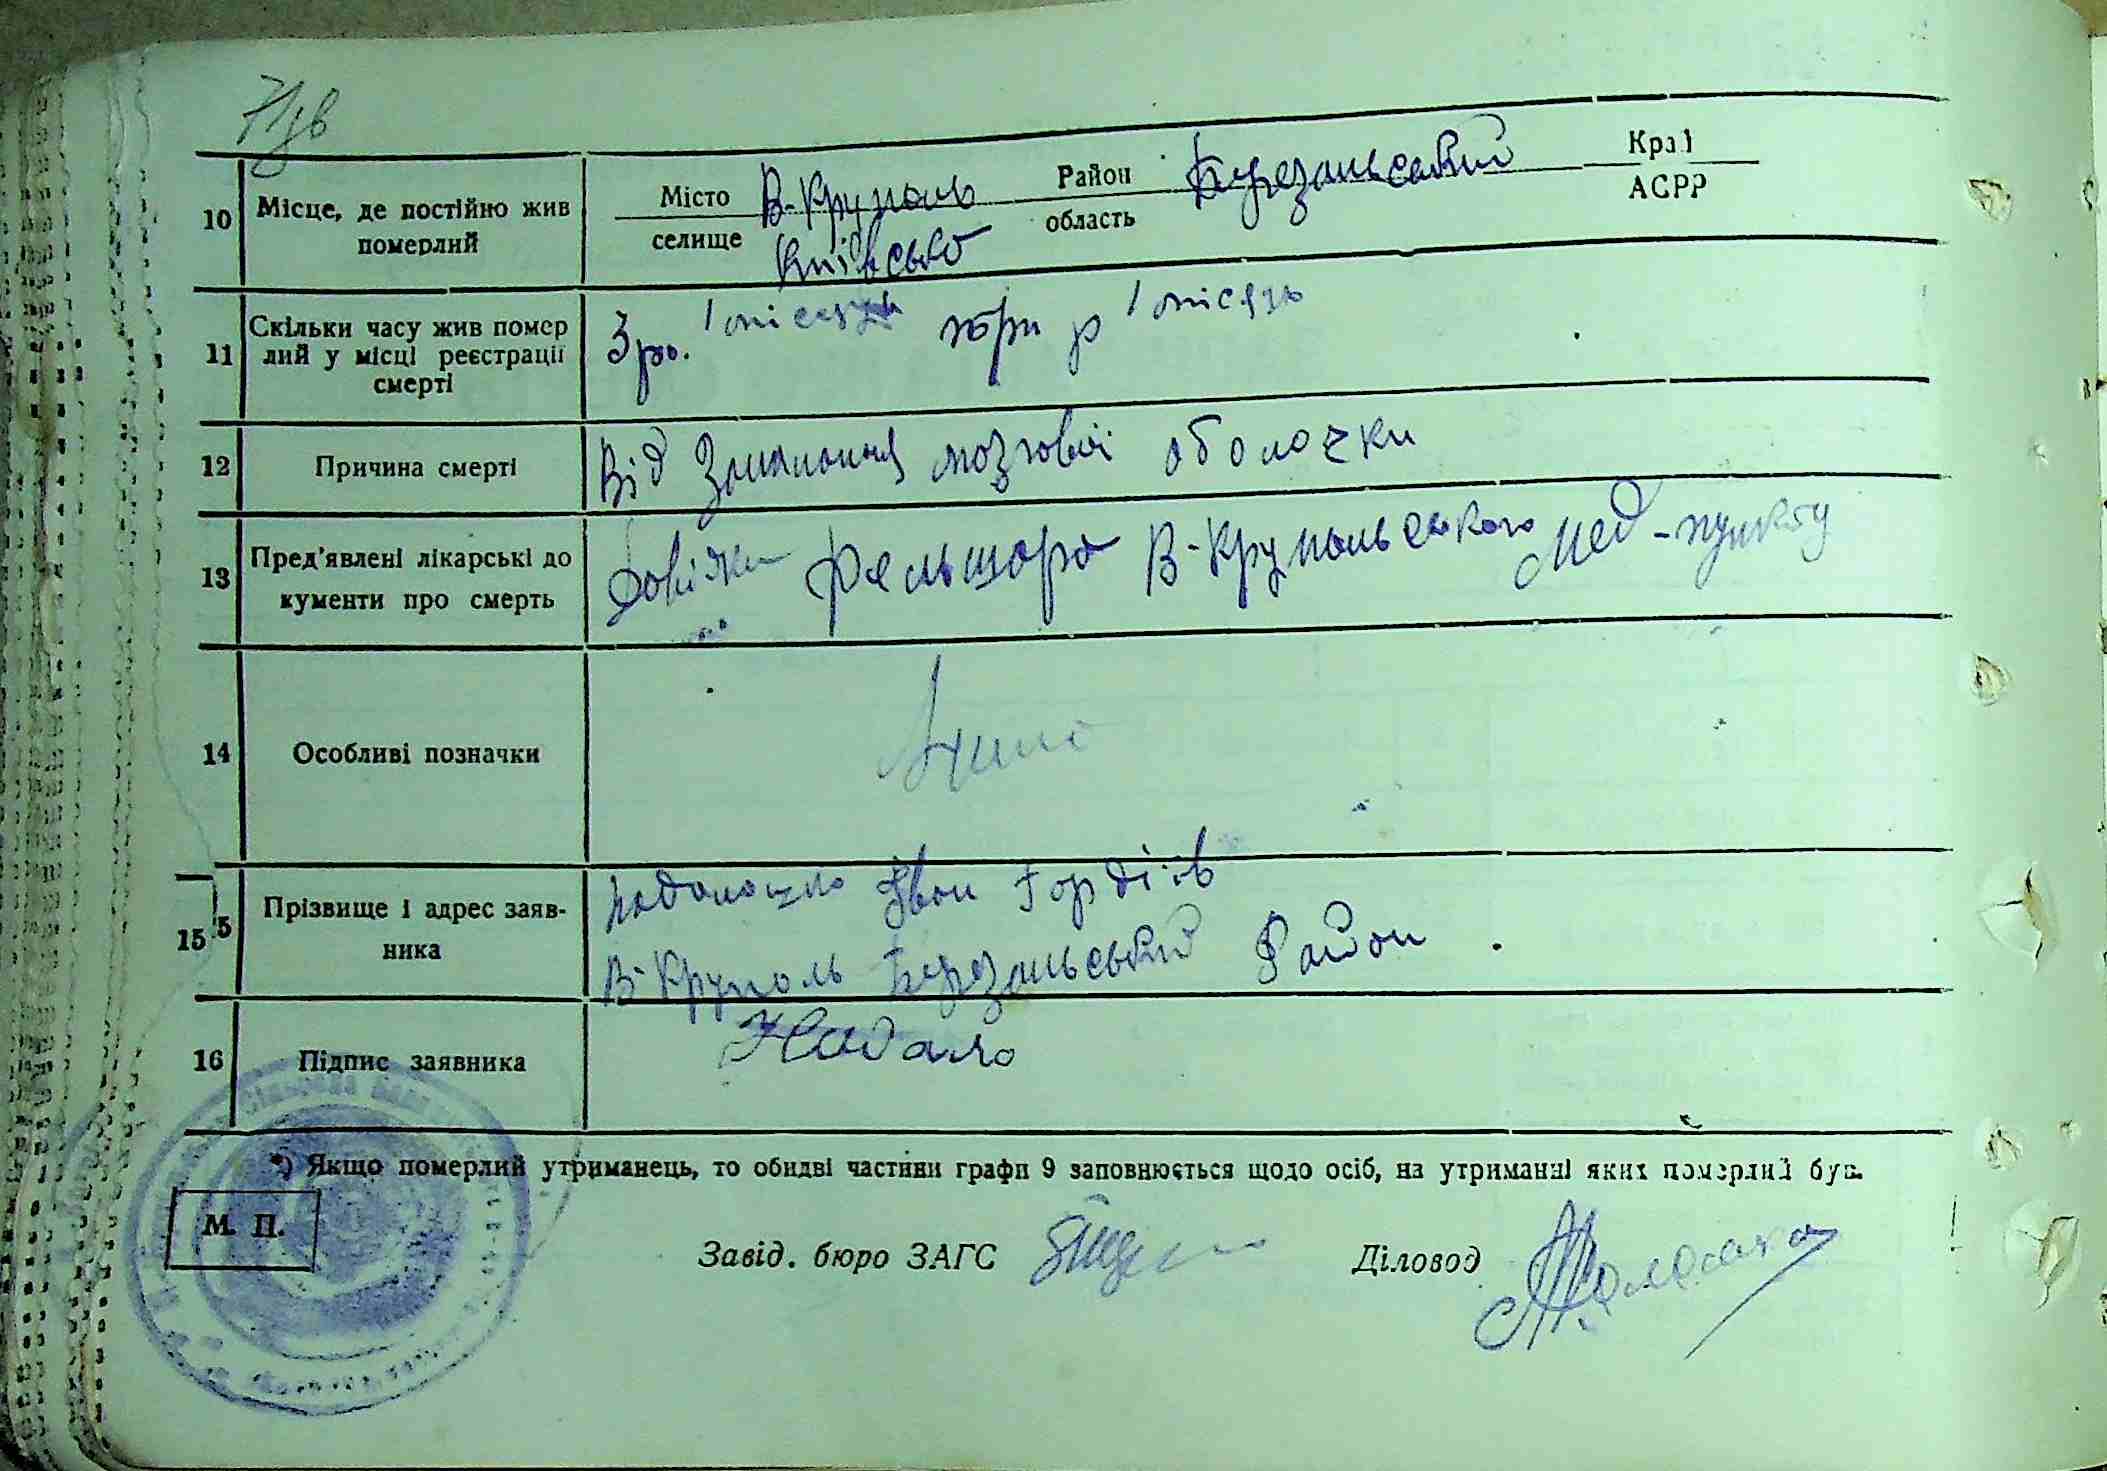 71зв
10 Місце, де постійно жив померлий
Місто селище В-Круполь Район область Березанський Край АСРР
Київсько
11 Скільки часу жив помер лий у місці реєстрації смерті
3 ро. 1 місяць три р 1 місяць
12 Причина смерті
Від Запалення мозгової оболочки
13 Пред'явлені лікарські до кументи про смерть
Довідка Фельшара В-Крупольського Мед-пункту
14 Особливі позначки
15 5 Прізвище і адрес заяв- ника
Іван Гордіїв
В-Круполь Березанський Район.
16 Підпис заявника
*) Якщо померлий утриманець, то обидві частини графи 9 заповнюється щодо осіб, на утриманні яких померлий був.
М. П.
Завід. бюро ЗАГС
Діловод